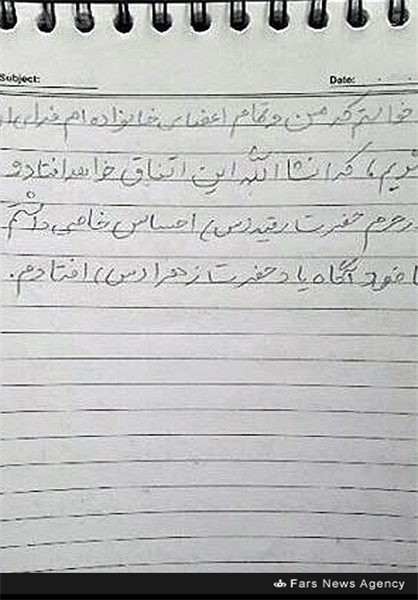 Subject:
Date:
خواستم که من و تمام اعضای خانواده ام فدایی
شویم، که انشاالله این اتفاق خواهد افتاد و
در حرم حضرت رقیه (س) احساس خاصی داشتم
نا خود آگاه یاد حضرت زهرا (س) افتادم.
Fars News Agency